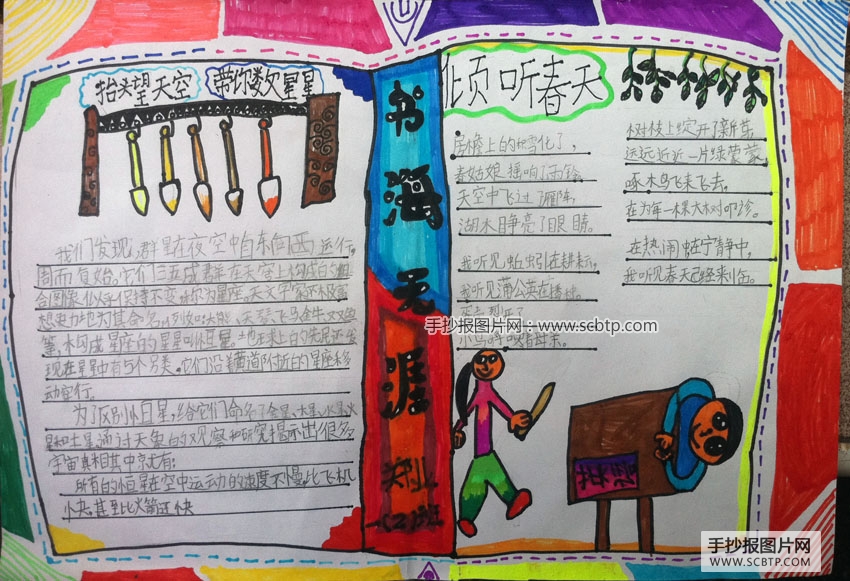 抬头望天空 带你数星星
我们发现,群星在夜空中自东向西运行,
周而复始。它们三五成群在天空上构成的组
合图象似乎保持不变,称为星座。天文学家
想
等,构成星座的星星叫恒星。地球上的先民还发
现在星星中有5个另类。它们沿着黄道附近的星座移
动穿行。
为了区别恒星,给它们命名了金星、木星、水星、火
星和土星通过天象的观察和研究揭示出很多
宇宙真相其中就有:
所有的恒星在空中运动的速度不慢,比飞机
快,甚至比火箭还快
书海无涯
二(2)班
倾听春天
房檐上的积雪化了,
春姑娘摇响了雨铃
天空中飞过了雁阵
湖水睁亮了眼睛。
我听见蚯蚓在耕耘,
我听见蒲公英在播种
小鸟呼唤着母亲。
树枝上绽开了新芽
远远近近一片绿蒙蒙
啄木鸟飞来飞去。
在为每一棵大树叩诊。
在热闹在宁静中,
我听见春天已经来临。
手抄报图片网:www.scbtp.com
英语
手抄报图片网
WWW.SCBTP.COM